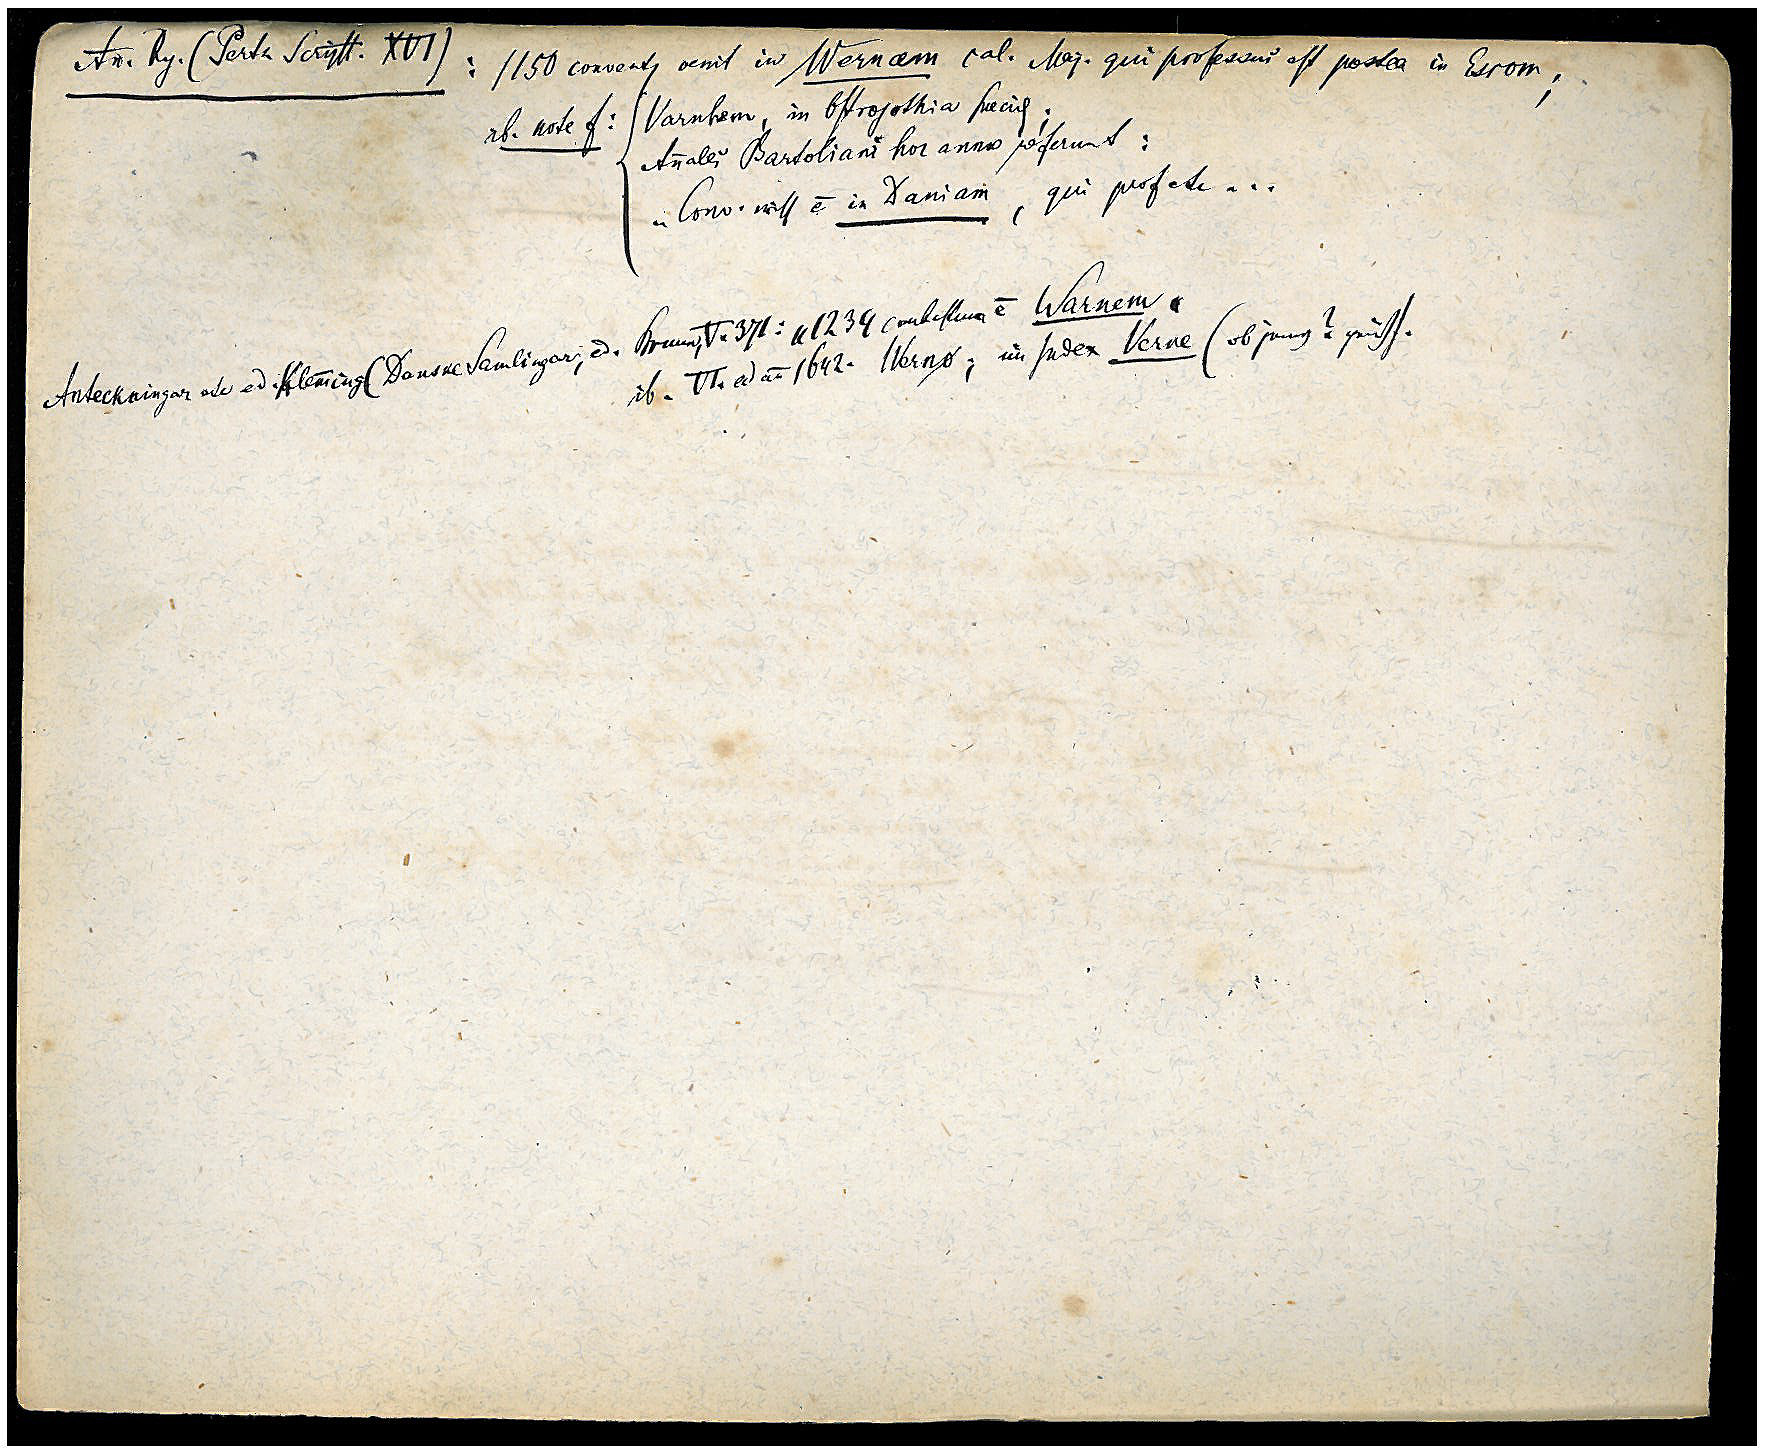 An. Ry. (Pertz Scriptt. XVI) : 1150 convent9 venit in Wernæm cal. Maj. qui professus est postea in Esrom;
ib. note f: Varnhem, in Ostrogothia Suecię;
Annales Bartoliani hoc anno referunt:
"Conv. miss ē in Daniam, qui profectc ...
Anteckningar etc ed. Klemming (Danske Samlingar, ed. Bruun, V. 371: "1234 combustum ē Warnem "
ib. VI. ad an 1642. Wernø; im Index Verne (ob jung?